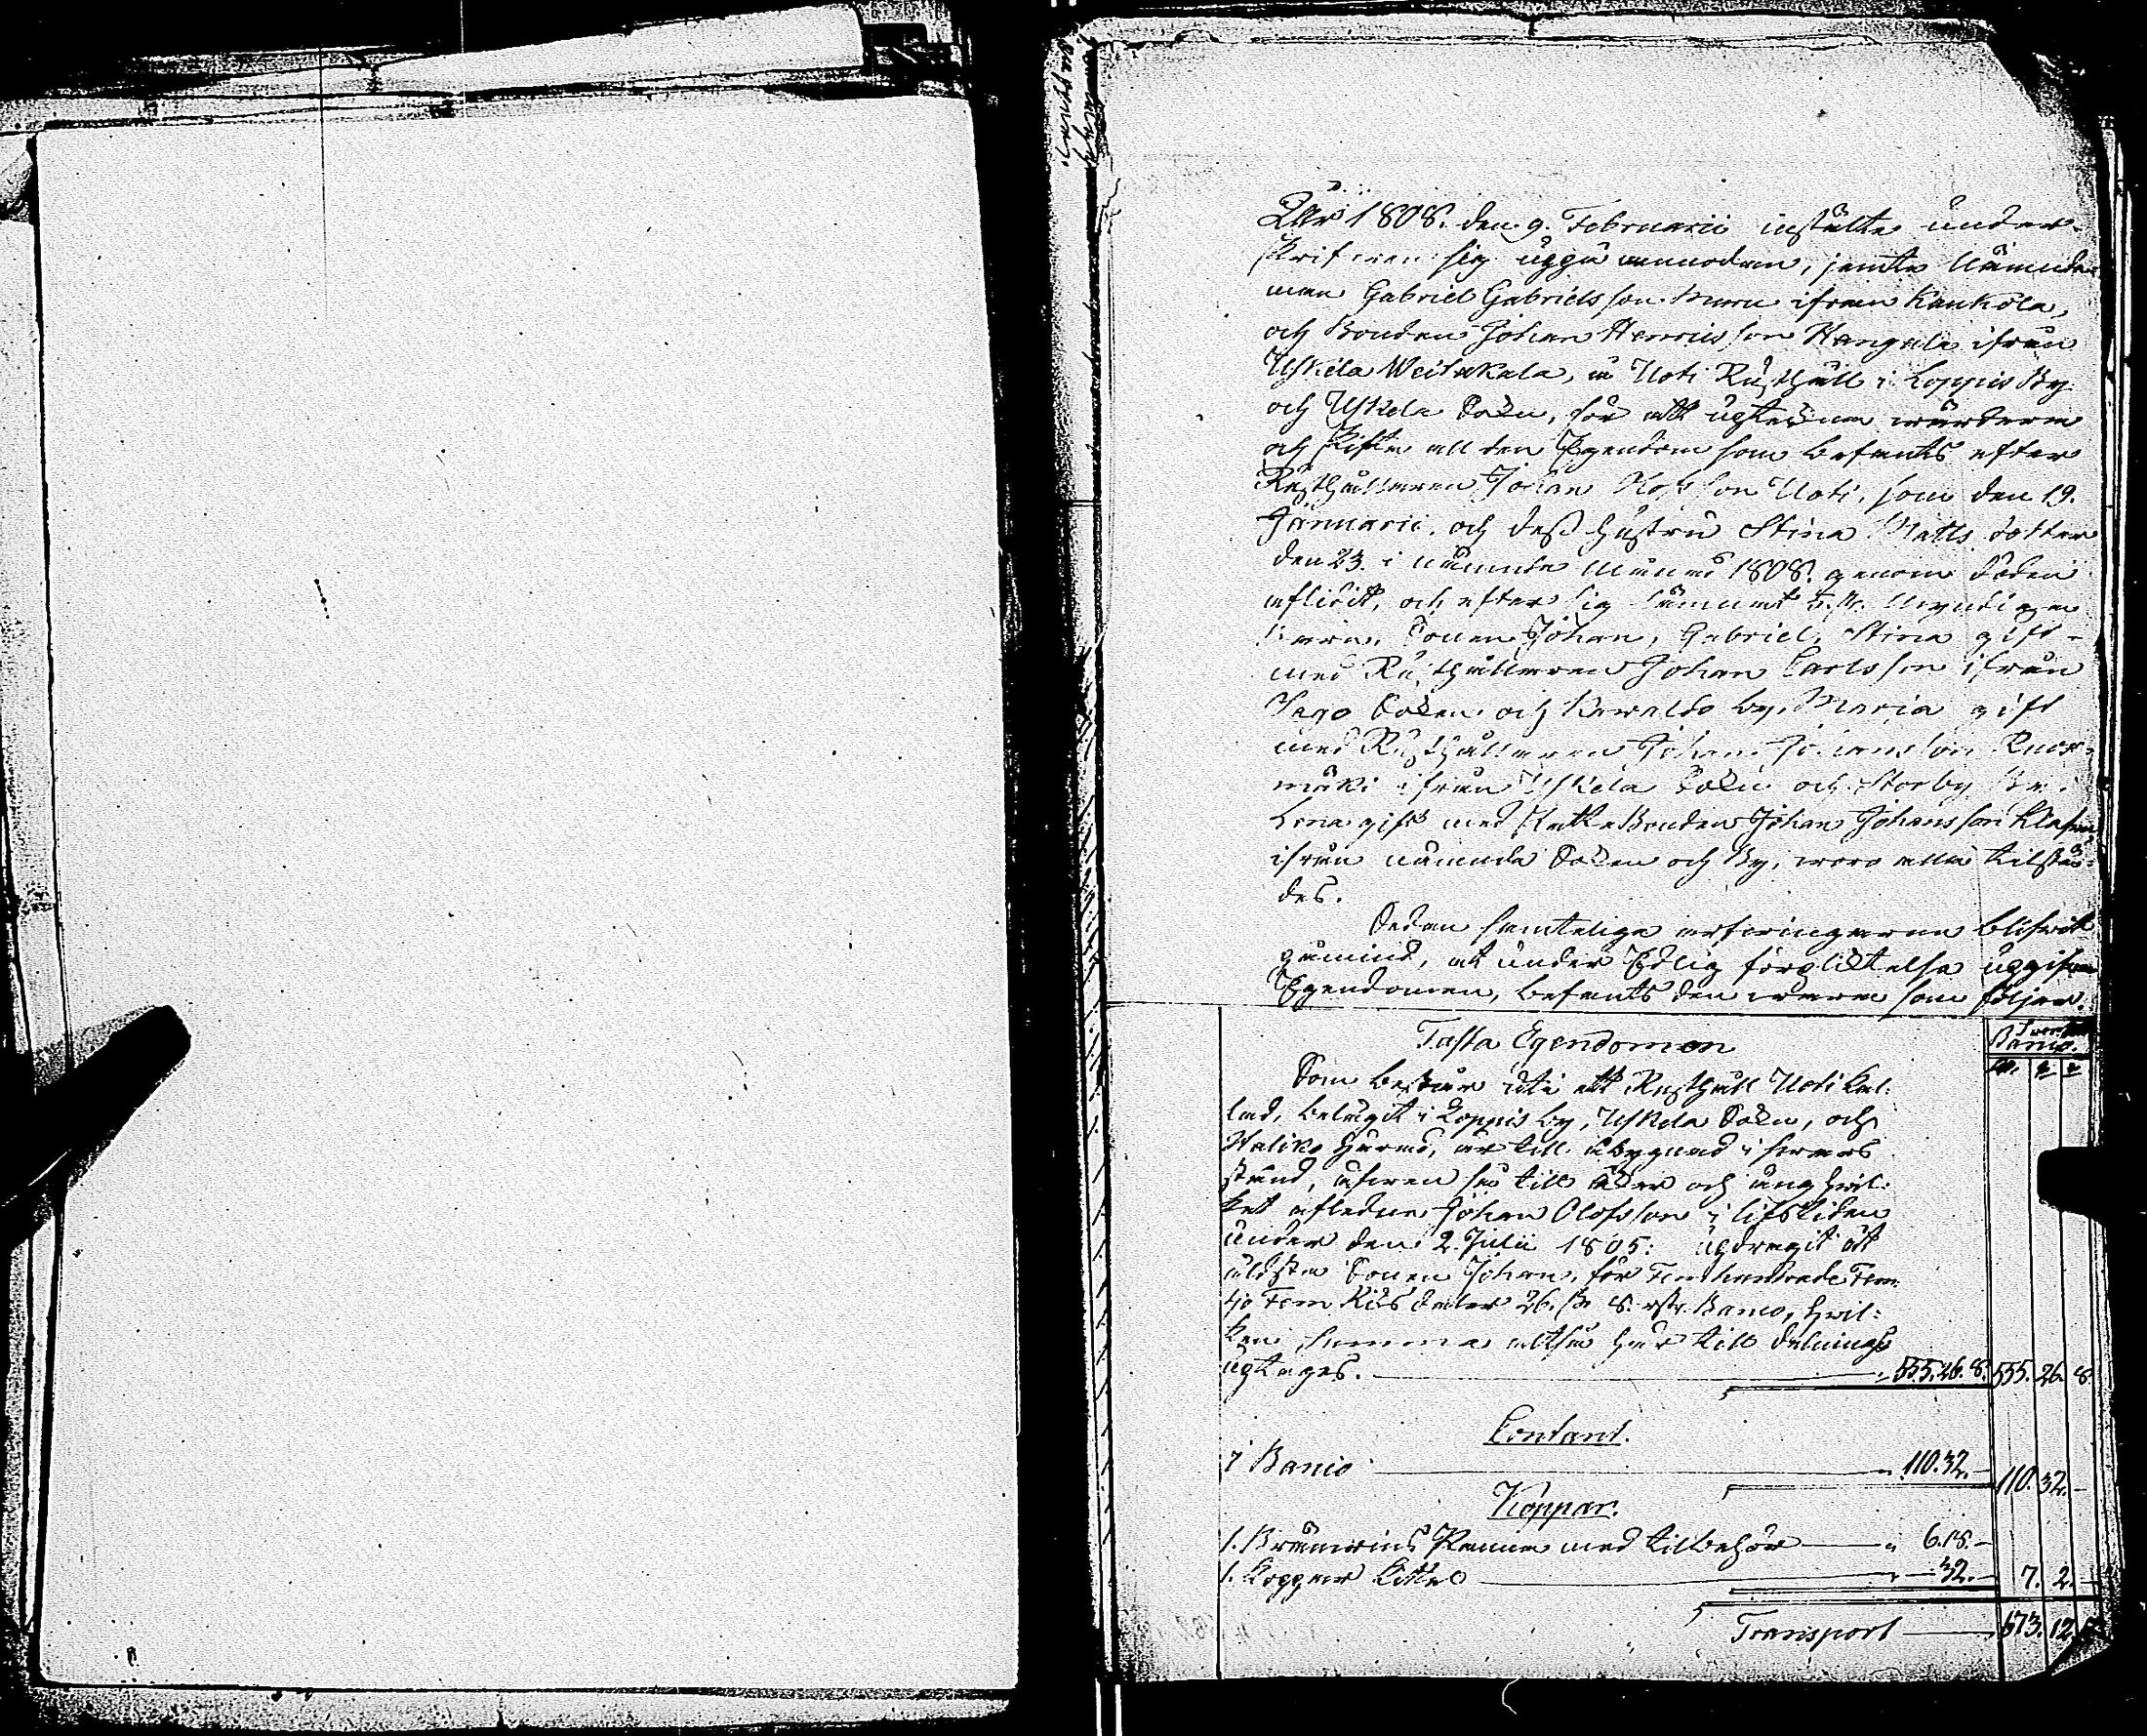 År 1808. den 9. Februarii instälte under-
skrifven sig uppå anmodan, jemte Nämnde-
man Gabriel Gabrielsson ifrån Kankola,
och Bonden Johan Henricsson Kangala ifrån
Uskela Weitakala, å Uoti Rusthåll i Loppis By
och Uskela Sokn, för att upteckna värdera
och skifta all den Egendom som befants efter
Rusthållaren Johan Uoti, som den 19.
Januarii, och dess hustru Stina Matts dotter
den 23. i nämnde Månad 1808. genom döden
aflidit, och efter sig lämnat Myndiga
barn, Sonen Johan, Gabriel, Stina gift
med Rusthållaren Johan Carlsson ifrån
Sagu Sokn och by, Maria gift
med Rusthållaren Johan Johansson
mäki ifrån Uskela Sokn och Storby
Lena gift med SkatteBonden Johan Johansson
ifrån nämnde Sokn och By, woro alla tilstä-
des.
Sedan samtelige arfvingarne blifvit
påmind, at under Edlig förpliktelse uppgifva
Egendomen, befants den wara som följer.
Fasta Egendomen
Banco.
Som består uti ett Rusthåll Uoti kal-
lad, belägit i Loppis by, Uskela Sokn, och
Haliko härad, är till åbygnad i
stånd, äfven så till åker och äng hvil-
ket afledne Johan Olofsson i lifstiden
under den 2 Julii 1805: updragit åt
äldsta Sonen Johan, för Femhundrade Fem-
tio Fem Riksdaler 26. sk 8. rst. Banco, hvil-
ken summa altså här till delnings
uptages. 555. 26. 8. 555. 26. 8.
Contant.
i Banco 110. 32. 110. 32.
Koppar.
1. Brännvins Panna med tilbehör 6. 18.
1. Koppar Kittel 32. 7. 2.
Transport 673. 12.